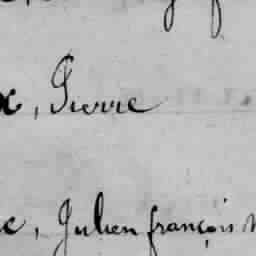 x, Pierre
c, Julien françois